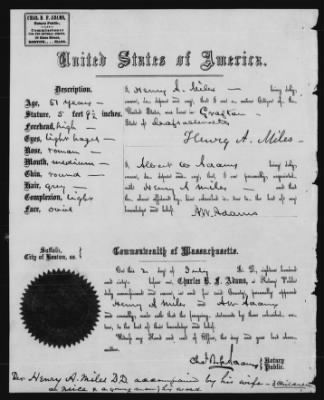 CHAS. B. F. ADAMS,
Notary Public,
Commissioner
United States of America.
Description.
Age, 61 years
Stature, 5 feet 9½ inches.
Forehead, high
Eyes, light hazel
Nose, roman
Mouth, medium
Skin, round
Hair, grey
Complexion, light
Face, oval
I, Henry A. Miles being duly
sworn, do depose and say, that I am a native Citizen of the
United States, was born in Grafton
State of Massachusetts
Henry A. Miles
I, Albert W. Adams being duly
sworn, do depose and say, that I am personally acquainted
with Henry A Miles and that
the above affidavit by him executed is true to the best of my
knowledge and belief. A.W. Adams
Suffolk,
City of Boston, ss.
Commonwealth of Massachusetts.
On this 2 day of July A. D. eighteen hundred
and before me, Charles B. F. Adams, a Notary Public
duly commissioned and sworn, in and for said County, personally appeared
Henry A Miles and A W Adams
and severally made oath that the foregoing statements by them subscribed, are
true, to the best of their knowledge and belief.
Witness my Hand and seal of Office, the day and year last above
written.
Chas B F Adams Notary Public.
Rev Henry A. Miles D.D. accompanied by his wife